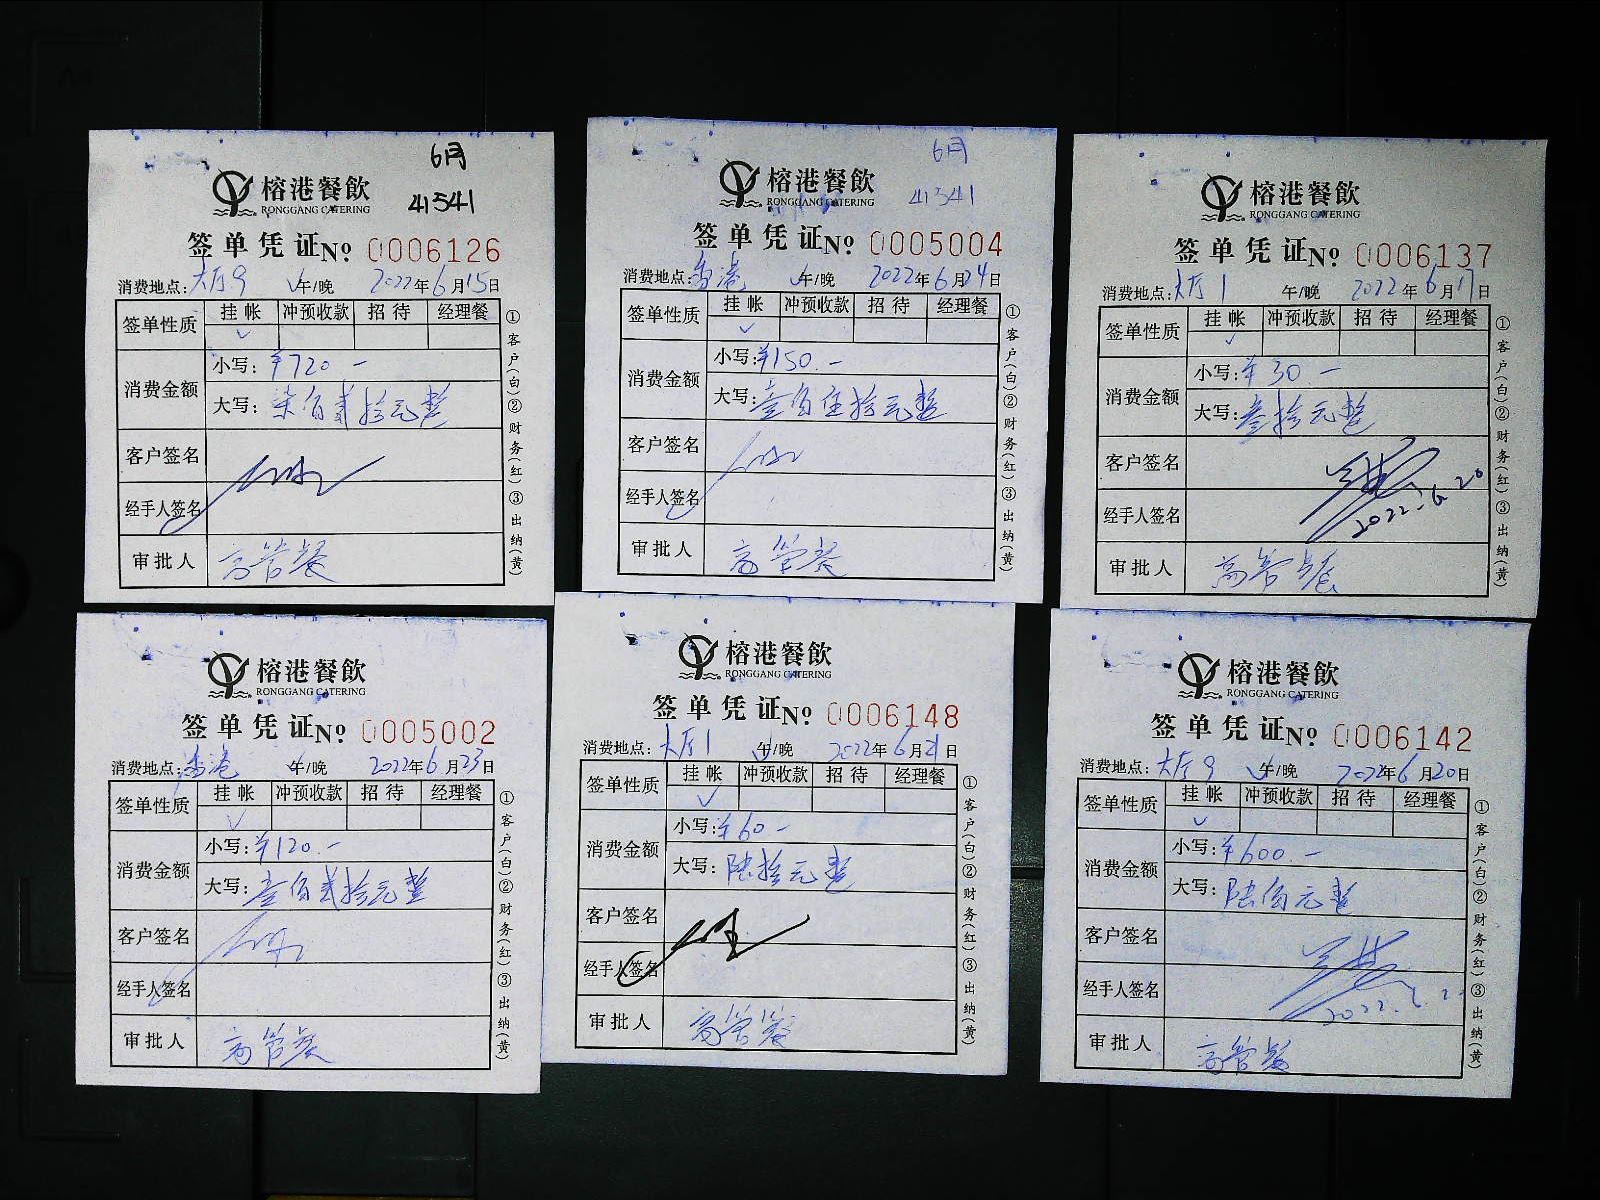 6月
41541
榕港餐飲
RONGGANG CATERING
签单凭证 No 0006126
消费地点：大厅9 午/晚 2022年6月15日
签单性质 挂帐 冲预收款 招待 经理餐
✓
消费金额 小写：¥720 —
大写：柒佰贰拾元整
客户签名
经手人签名
审批人 高管餐
①客户(白)②财务(红)③出纳(黄)
6月
41541
榕港餐飲
RONGGANG CATERING
签单凭证 No 0005004
消费地点：香港 午/晚 2022年6月24日
签单性质 挂帐 冲预收款 招待 经理餐
✓
消费金额 小写：¥150.—
大写：壹佰伍拾元整
客户签名
经手人签名
审批人 高管餐
①客户(白)②财务(红)③出纳(黄)
榕港餐飲
RONGGANG CATERING
签单凭证 No 0006137
消费地点：大厅1 午/晚 2022年6月17日
签单性质 挂帐 冲预收款 招待 经理餐
✓
消费金额 小写：¥30 —
大写：叁拾元整
客户签名
经手人签名 2022.6.20
审批人 高管餐
①客户(白)②财务(红)③出纳(黄)
榕港餐飲
RONGGANG CATERING
签单凭证 No 0005002
消费地点：香港 午/晚 2022年6月23日
签单性质 挂帐 冲预收款 招待 经理餐
✓
消费金额 小写：¥120.—
大写：壹佰贰拾元整
客户签名
经手人签名
审批人 高管餐
①客户(白)②财务(红)③出纳(黄)
榕港餐飲
RONGGANG CATERING
签单凭证 No 0006148
消费地点：大厅1 午/晚 2022年6月21日
签单性质 挂帐 冲预收款 招待 经理餐
✓
消费金额 小写：¥60 —
大写：陆拾元整
客户签名
经手人签名
审批人 高管餐
①客户(白)②财务(红)③出纳(黄)
榕港餐飲
RONGGANG CATERING
签单凭证 No 0006142
消费地点：大厅9 午/晚 2022年6月20日
签单性质 挂帐 冲预收款 招待 经理餐
✓
消费金额 小写：¥600.—
大写：陆佰元整
客户签名
经手人签名
审批人 高管餐
①客户(白)②财务(红)③出纳(黄)